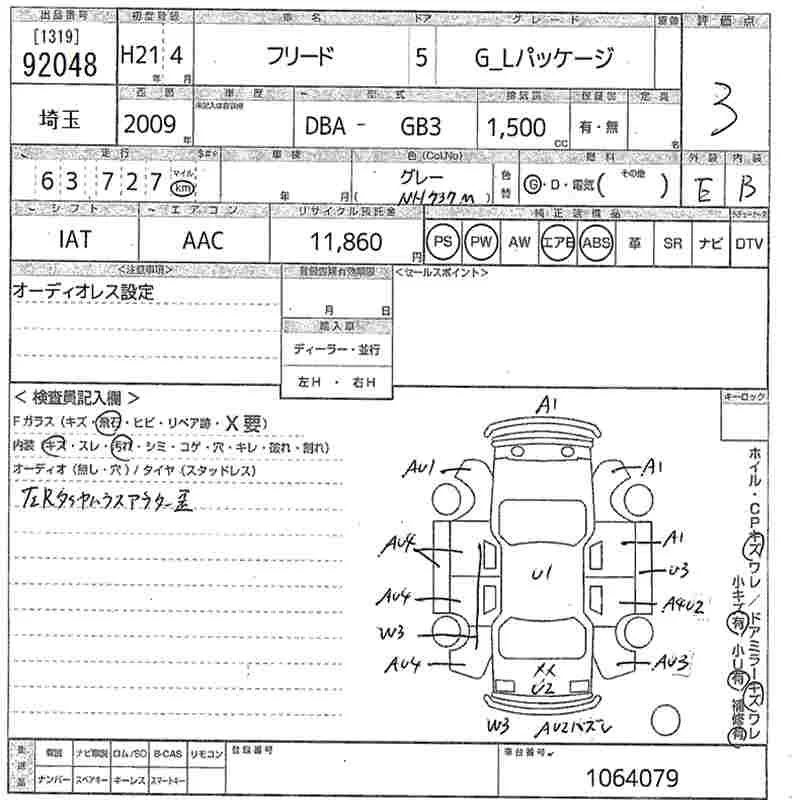 出品番号 初度登録 車名 ドア グレード 原動 評価点
[1319]
92048 H21 4 フリード 5 G_Lパッケージ 3
年 月
西暦 車歴 型式 排気量 保証書 定員
未記入は自家用
埼玉 2009 年 DBA - GB3 1,500 CC 有・無 名
走行 車検 色(Col.No) 燃料 外装 内装
63,727 マイル km 年 月 グレー (NH737M) 色替 G・D・電気( その他 ) E B
シフト エアコン リサイクル預託金 純正装備品
IAT AAC 11,860 円 PS PW AW エアB ABS 革 SR ナビ DTV
<注意事項> 登録書類有効期限 <セールスポイント>
オーディオレス設定
月 日
輸入車
ディーラー・並行
左H ・ 右H
キーロック
<検査員記入欄>
Fガラス(キズ・飛石・ヒビ・リペア跡・X要)
内装(キズ・スレ・汚れ・シミ・コゲ・穴・キレ・破れ・割れ)
オーディオ(無し・穴)/タイヤ(スタッドレス)
A1
AU1 A1
AU4 A1
U1 U3
AU4 A4U2
W3
AU4 XX AU3
U2
W3 AU2バズレ
ホイル・CPキズワレ/ドアミラーキズワレ
小キズ有 小U有 補修有
後送品 取説 ナビ取説 ロム/SD B-CAS リモコン 登録番号 車台番号
ナンバー スペアキー キーレス スマートキー 1064079